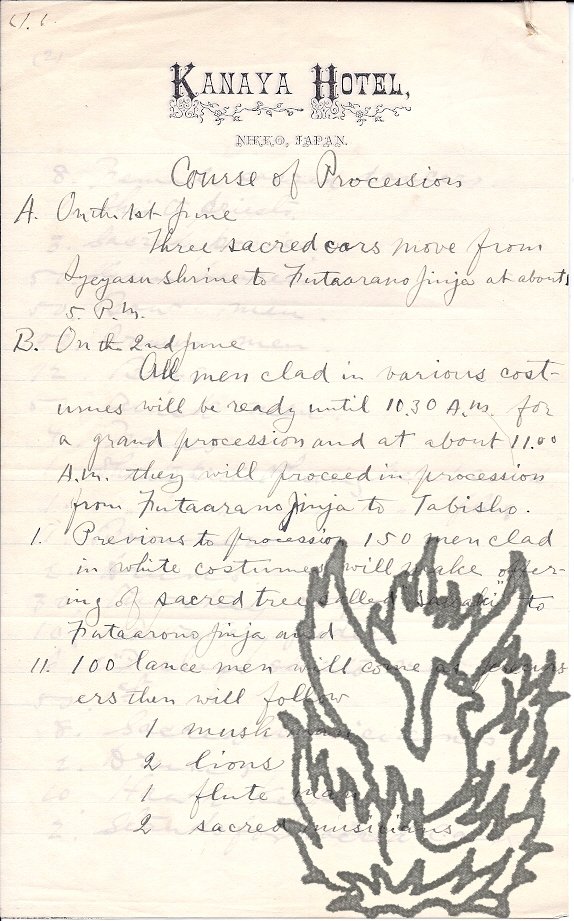 KANAYA HOTEL,
NIKKO, JAPAN.
Course of Procession
A. On the 1st June
Three sacred cars move from
Iyeyasu shrine to Futaarano Jinja at about
5. P.M.
B. On the 2nd June
All men clad in various cost-
umes will be ready until 10.30 A.M. for
a grand procession and at about 11.00
A.M. they will proceed in procession
from Futaarano Jinja to Tabisho.
1. Previous to procession 150 men clad
in white costumes will make offer-
ing of sacred tree called "Sakaki" to
Futaarono Jinja and
11. 100 lance men will come as
ers then will follow
1 musk man
2 lions
1 flute man
2 sacred musicians